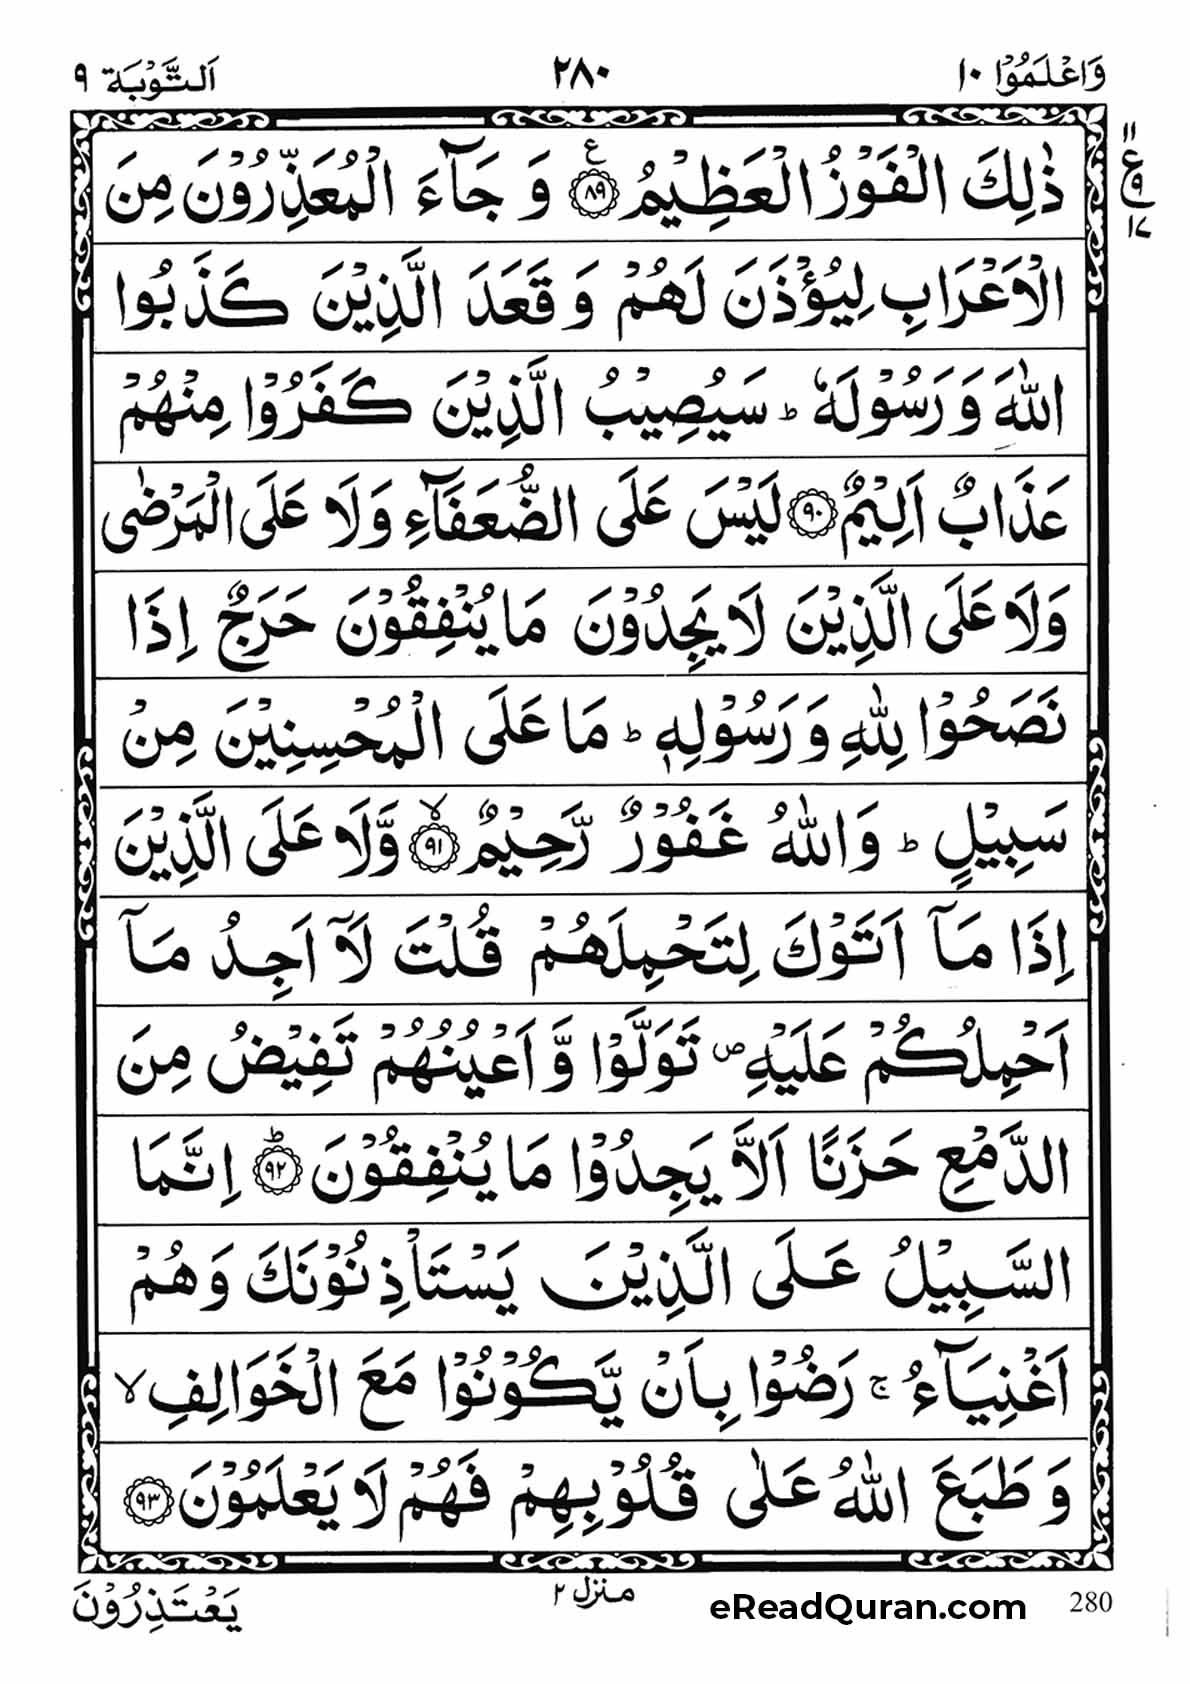 وَاعْلَمُوْا ١٠ ٢٨٠ اَلتَّوْبَة ٩
١١
ع
٩
١٧
ذٰلِكَ الْفَوْزُ الْعَظِيْمُ ﴿٨٩﴾ ع وَ جَآءَ الْمُعَذِّرُوْنَ مِنَ
الْاَعْرَابِ لِيُؤْذَنَ لَهُمْ وَ قَعَدَ الَّذِيْنَ كَذَبُوا
اللّٰهَ وَ رَسُوْلَهٗ ؕ سَيُصِيْبُ الَّذِيْنَ كَفَرُوْا مِنْهُمْ
عَذَابٌ اَلِيْمٌ ﴿٩٠﴾ لَيْسَ عَلَى الضُّعَفَآءِ وَلَا عَلَى الْمَرْضٰى
وَلَا عَلَى الَّذِيْنَ لَا يَجِدُوْنَ مَا يُنْفِقُوْنَ حَرَجٌ اِذَا
نَصَحُوْا لِلّٰهِ وَ رَسُوْلِهٖ ؕ مَا عَلَى الْمُحْسِنِيْنَ مِنْ
سَبِيْلٍ ؕ وَاللّٰهُ غَفُوْرٌ رَّحِيْمٌ ﴿٩١﴾ ۙ وَّلَا عَلَى الَّذِيْنَ
اِذَا مَآ اَتَوْكَ لِتَحْمِلَهُمْ قُلْتَ لَآ اَجِدُ مَآ
اَحْمِلُكُمْ عَلَيْهِ ۪ تَوَلَّوْا وَّ اَعْيُنُهُمْ تَفِيْضُ مِنَ
الدَّمْعِ حَزَنًا اَلَّا يَجِدُوْا مَا يُنْفِقُوْنَ ﴿٩٢﴾ ؕ اِنَّمَا
السَّبِيْلُ عَلَى الَّذِيْنَ يَسْتَاْذِنُوْنَكَ وَهُمْ
اَغْنِيَآءُ ۚ رَضُوْا بِاَنْ يَّكُوْنُوْا مَعَ الْخَوَالِفِ ۙ
وَ طَبَعَ اللّٰهُ عَلٰى قُلُوْبِهِمْ فَهُمْ لَا يَعْلَمُوْنَ ﴿٩٣﴾
280 eReadQuran.com منزل ٢ يَعْتَذِرُوْنَ